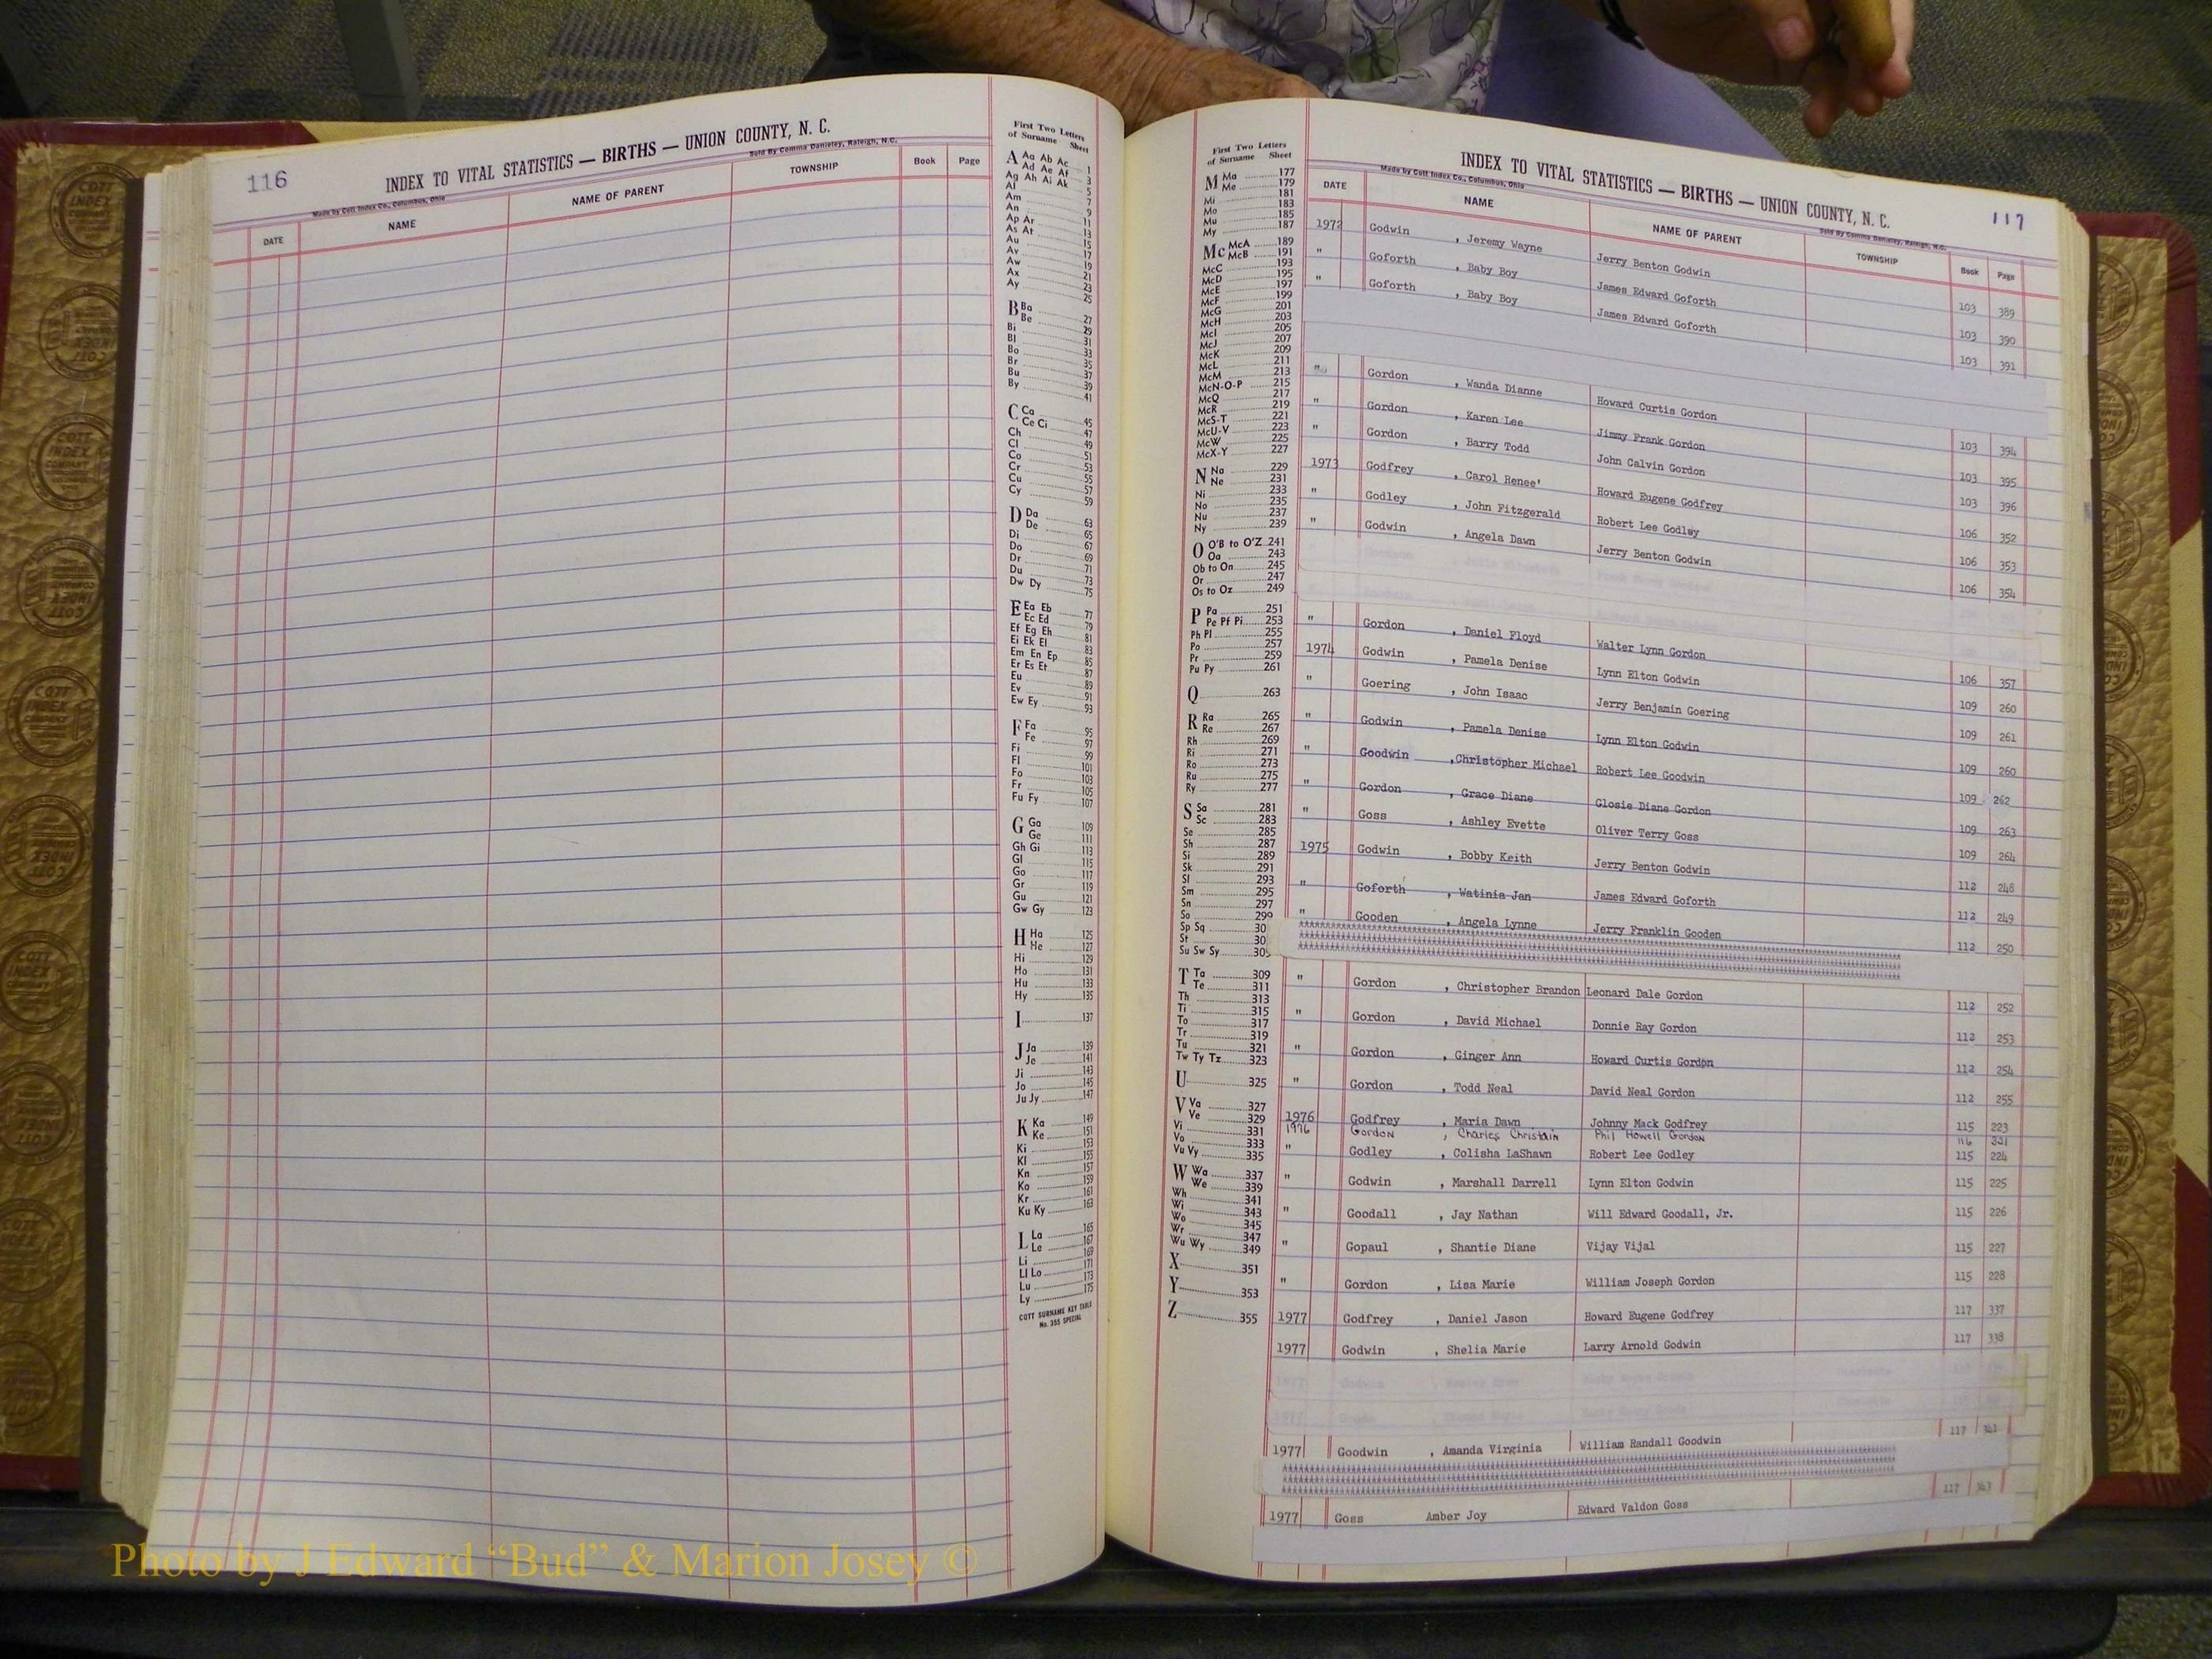 116
INDEX TO VITAL STATISTICS — BIRTHS — UNION COUNTY, N. C.
Made by Cott Index Co., Columbus, Ohio
Sold By Comma Danieley, Raleigh, N.C.
DATE NAME NAME OF PARENT TOWNSHIP Book Page
First Two Letters
of Surname Sheet
A Aa Ab Ac 1
Ad Ae Af 3
Ag Ah Ai Ak 5
Al 7
Am 9
An 11
Ap Ar 13
As At 15
Au 17
Av 19
Aw 21
Ax 23
Ay 25
B Ba 27
Be 29
Bi 31
Bl 33
Bo 35
Br 37
Bu 39
By 41
C Ca 45
Ce Ci 47
Ch 49
Cl 51
Co 53
Cr 55
Cu 57
Cy 59
D Da 63
De 65
Di 67
Do 69
Dr 71
Du 73
Dw Dy 75
E Ea Eb 77
Ec Ed 79
Ef Eg Eh 81
Ei Ek El 83
Em En Ep 85
Er Es Et 87
Eu 89
Ev 91
Ew Ey 93
F Fa 95
Fe 97
Fi 99
Fl 101
Fo 103
Fr 105
Fu Fy 107
G Ga 109
Ge 111
Gh Gi 113
Gl 115
Go 117
Gr 119
Gu 121
Gw Gy 123
H Ha 125
He 127
Hi 129
Ho 131
Hu 133
Hy 135
I 137
J Ja 139
Je 141
Ji 143
Jo 145
Ju Jy 147
K Ka 149
Ke 151
Ki 153
Kl 155
Kn 157
Ko 159
Kr 161
Ku Ky 163
L La 165
Le 167
Li 169
Ll Lo 171
Lu 173
Ly 175
COTT SURNAME KEY TABLE
No. 355 SPECIAL
First Two Letters
of Surname Sheet
M Ma 177
Me 179
Mi 181
Mo 183
Mu 185
My 187
Mc McA 189
McB 191
McC 193
McD 195
McE 197
McF 199
McG 201
McH 203
McI 205
McJ 207
McK 209
McL 211
McM 213
McN-O-P 215
McQ 217
McR 219
McS-T 221
McU-V 223
McW 225
McX-Y 227
N Na 229
Ne 231
Ni 233
No 235
Nu 237
Ny 239
O O'B to O'Z 241
Oa 243
Ob to On 245
Or 247
Os to Oz 249
P Pa 251
Pe Pf Pi 253
Ph Pl 255
Po 257
Pr 259
Pu Py 261
Q 263
R Ra 265
Re 267
Rh 269
Ri 271
Ro 273
Ru 275
Ry 277
S Sa 281
Sc 283
Se 285
Sh 287
Si 289
Sk 291
Sl 293
Sm 295
Sn 297
So 299
Sp Sq 30
St 30
Su Sw Sy 305
T Ta 309
Te 311
Th 313
Ti 315
To 317
Tr 319
Tu 321
Tw Ty Tz 323
U 325
V Va 327
Ve 329
Vi 331
Vo 333
Vu Vy 335
W Wa 337
We 339
Wh 341
Wi 343
Wo 345
Wr 347
Wu Wy 349
X 351
Y 353
Z 355
117
INDEX TO VITAL STATISTICS — BIRTHS — UNION COUNTY, N. C.
Made by Cott Index Co., Columbus, Ohio
Sold By Comma Danieley, Raleigh, N.C.
DATE NAME NAME OF PARENT TOWNSHIP Book Page
1972 Godwin , Jeremy Wayne Jerry Benton Godwin 103 389
" Goforth , Baby Boy James Edward Goforth 103 390
" Goforth , Baby Boy James Edward Goforth 103 391
" Gordon , Wanda Dianne Howard Curtis Gordon 103 394
" Gordon , Karen Lee Jimmy Frank Gordon 103 395
" Gordon , Barry Todd John Calvin Gordon 103 396
1973 Godfrey , Carol Renee' Howard Eugene Godfrey 106 352
" Godley , John Fitzgerald Robert Lee Godley 106 353
" Godwin , Angela Dawn Jerry Benton Godwin 106 354
" Gordon , Daniel Floyd Walter Lynn Gordon 106 357
1974 Godwin , Pamela Denise Lynn Elton Godwin 109 260
" Goering , John Isaac Jerry Benjamin Goering 109 261
" Godwin , Pamela Denise Lynn Elton Godwin 109 260
" Goodwin ,Christopher Michael Robert Lee Goodwin 109 262
" Gordon , Grace Diane Glosie Diane Gordon 109 263
" Goss , Ashley Evette Oliver Terry Goss 109 264
1975 Godwin , Bobby Keith Jerry Benton Godwin 112 248
" Goforth , Watinia Jan James Edward Goforth 112 249
" Gooden , Angela Lynne Jerry Franklin Gooden 112 250
" Gordon , Christopher Brandon Leonard Dale Gordon 112 252
" Gordon , David Michael Donnie Ray Gordon 112 253
" Gordon , Ginger Ann Howard Curtis Gordon 112 254
" Gordon , Todd Neal David Neal Gordon 112 255
1976 Godfrey , Maria Dawn Johnny Mack Godfrey 115 223
1976 Gordon , Charles Christain Phil Howell Gordon 116 331
" Godley , Colisha LaShawn Robert Lee Godley 115 224
" Godwin , Marshall Darrell Lynn Elton Godwin 115 225
" Goodall , Jay Nathan Will Edward Goodall, Jr. 115 226
" Gopaul , Shantie Diane Vijay Vijal 115 227
" Gordon , Lisa Marie William Joseph Gordon 115 228
1977 Godfrey , Daniel Jason Howard Eugene Godfrey 117 337
1977 Godwin , Shelia Marie Larry Arnold Godwin 117 338
1977 Goodwin , Amanda Virginia William Randall Goodwin 117 341
1977 Goss Amber Joy Edward Valdon Goss 117 343
Photo by J Edward “Bud” & Marion Josey ©